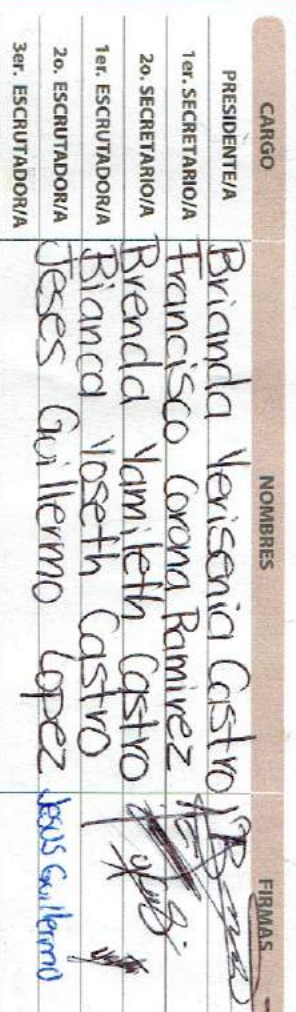 CARGO NOMBRES FIRMAS
PRESIDENTE/A Brianda Yerisenia Castro
1er. SECRETARIO/A Francisco Corona Ramirez
2o. SECRETARIO/A Brenda Yamileth Castro
1er. ESCRUTADOR/A Bianca Yoseth Castro
2o. ESCRUTADOR/A Jeses Guillermo Lopez Jesus Guillermo
3er. ESCRUTADOR/A